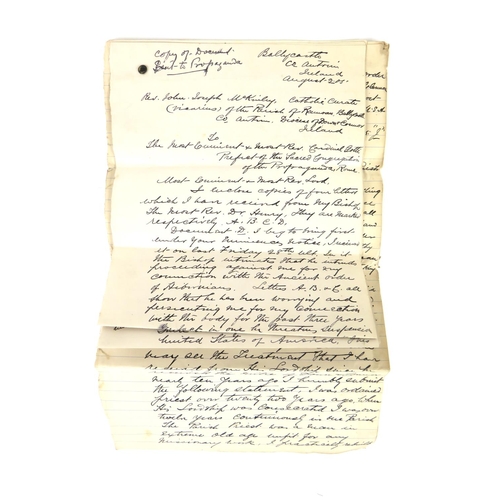 Copy of Document
Sent to Propaganda
Ballycastle
Co Antrim
Ireland
August 2nd.
Rev. John Joseph McKinley, Catholic Curate
(Vicarius) of the Parish of Ramoan, Ballycastle
Co Antrim, Diocese of Down & Connor
Ireland
To
The Most Eminent & Most Rev. Cardinal Gotti
Prefect of the Sacred Congregation
of the Propaganda, Rome
Most Eminent & Most Rev. Lord.
I enclose copies of four letters
which I have received from my Bishop
The Most Rev. Dr Henry. They are marked
respectively A. B. C. D.
Document D. I beg to bring first
under Your Eminence's notice; I received
it on last Friday 28th ult. In it
the Bishop intimates that he intends
proceeding against me for my
connection with the Ancient Order
of Hibernians. Letters A. B. & C. all
show that he has been worrying and
persecuting me for my connection
with the body for the past three years
in one he threatens suspension
United States of America.
may see the treatment that I have
received from His Lordship since
nearly ten years ago I humbly submit
the following statement. I was ordained
priest over twenty two years ago. When
His Lordship was Consecrated I was over
twelve years continuously in one Parish
The Parish Priest was a man in
extreme old age unfit for any
missionary work. I practically